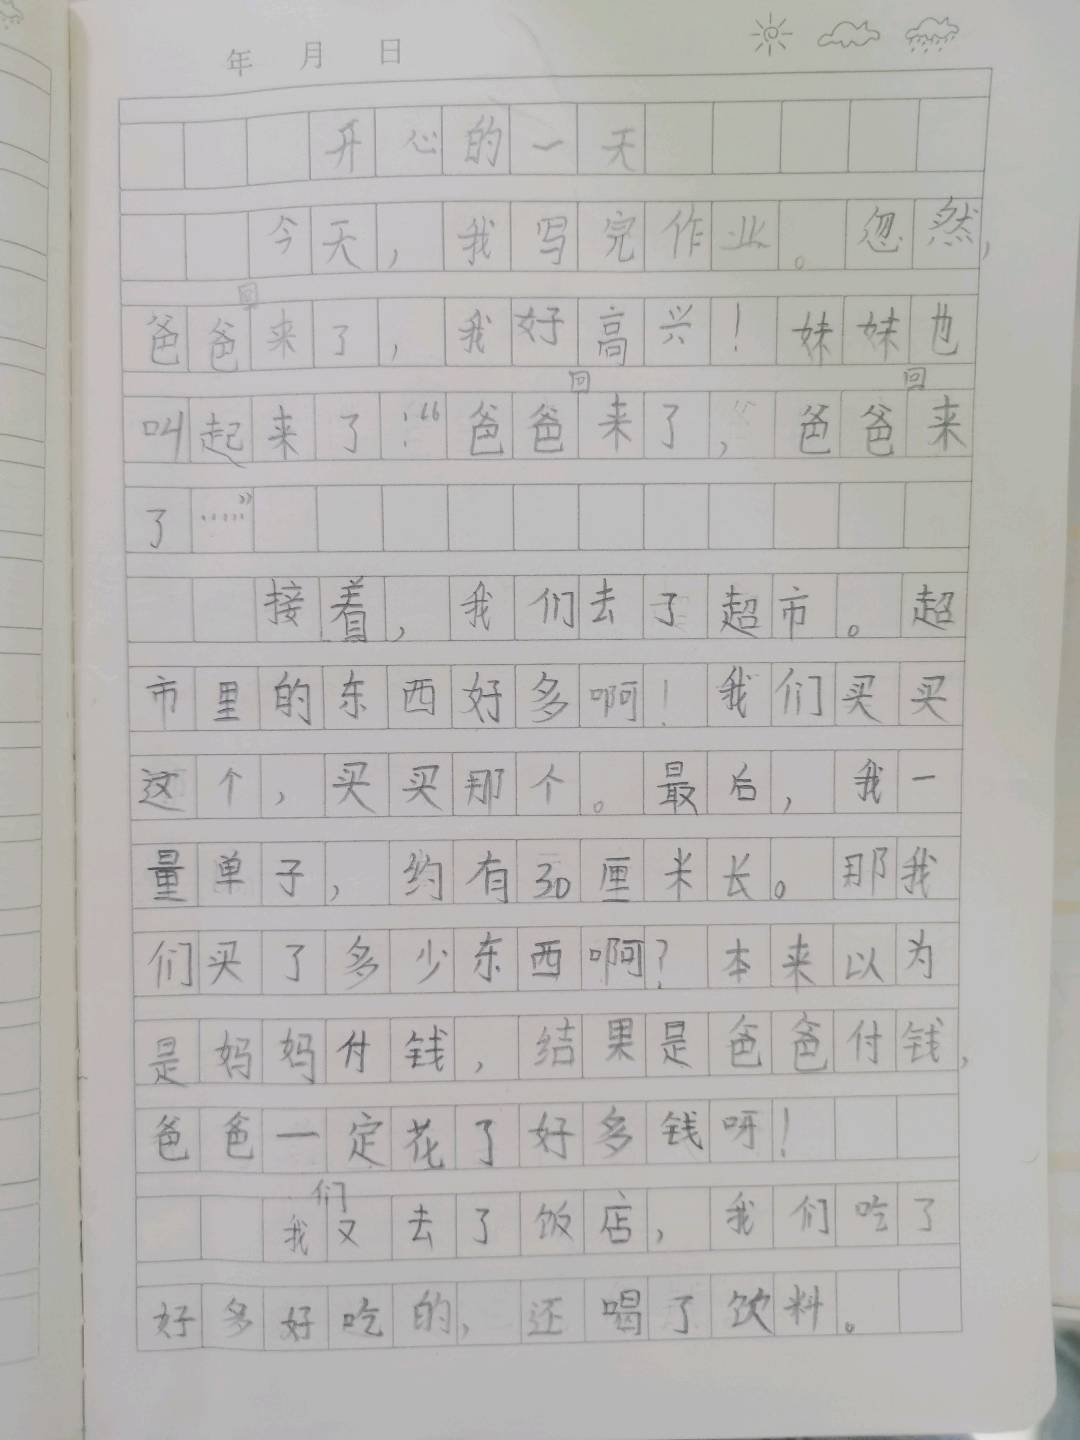 年 月 日
开心的一天
今天，我写完作业。忽然，
爸爸回来了，我好高兴！妹妹也
叫起来了：“爸爸回来了，爸爸回来
了……”
接着，我们去了超市。超
市里的东西好多啊！我们买买
这个，买买那个。最后，我一
量单子，约有30厘米长。那我
们买了多少东西啊？本来以为
是妈妈付钱，结果是爸爸付钱，
爸爸一定花了好多钱呀！
我们又去了饭店，我们吃了
好多好吃的，还喝了饮料。